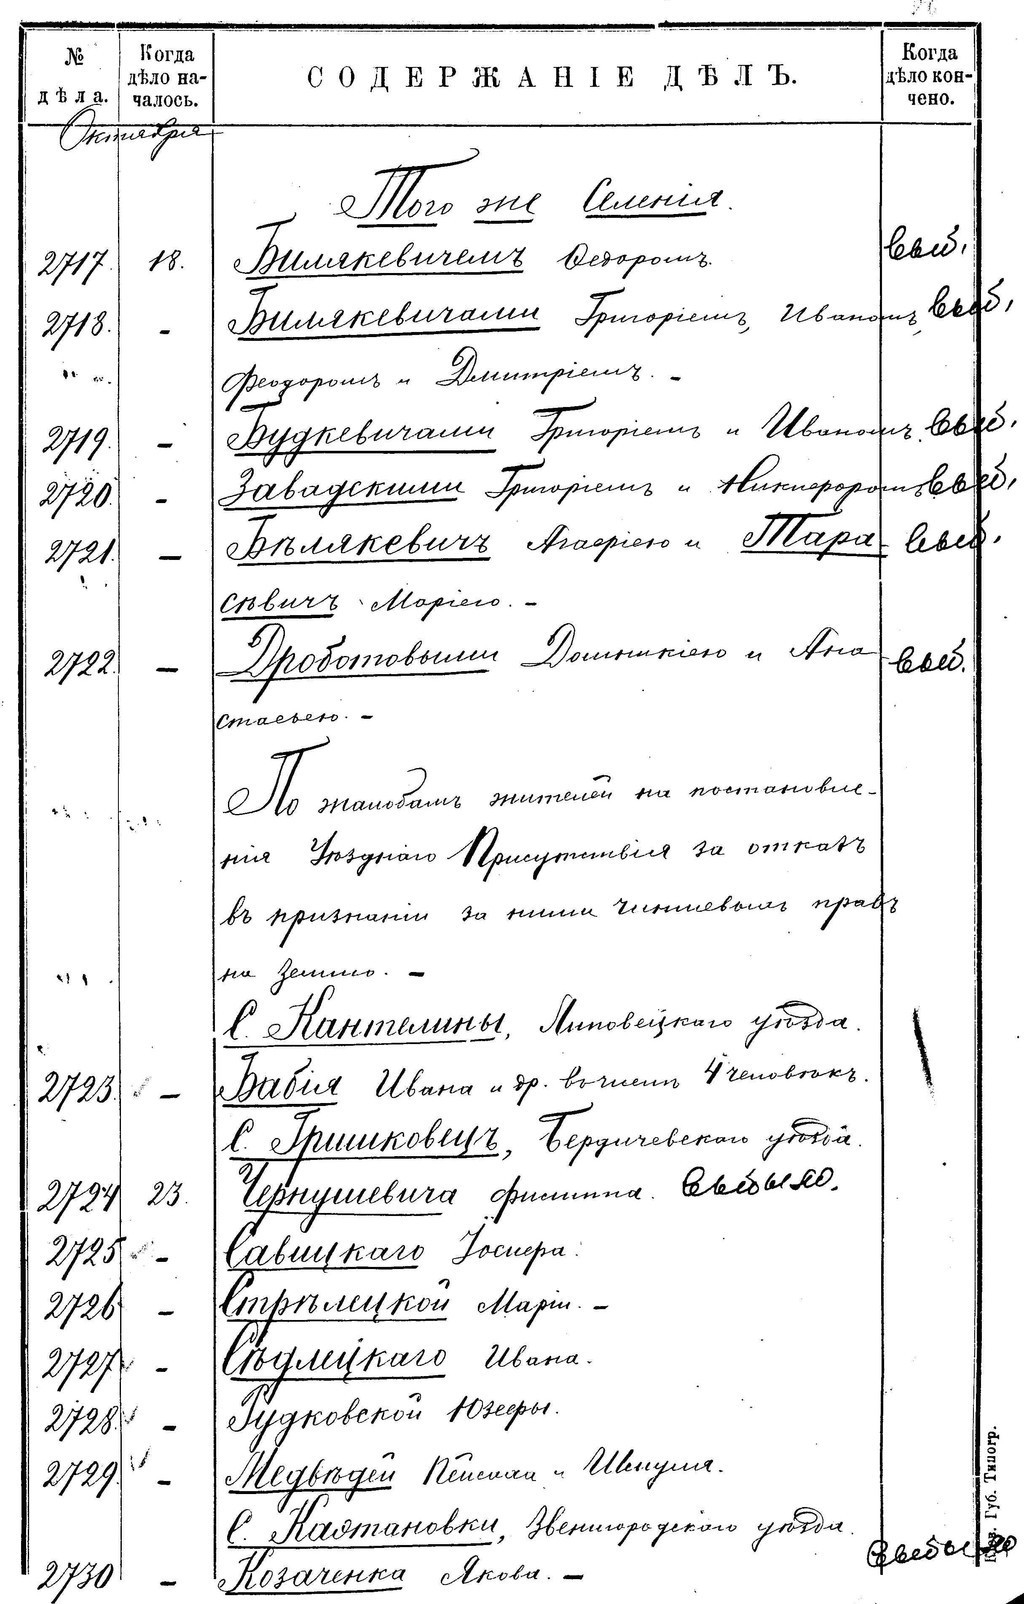 № дѣла. Когда дѣло началось. СОДЕРЖАНІЕ ДѢЛЪ. Когда дѣло кончено.
Октября
Того же Селенія.
2717. 18. Билякевичемъ Ѳедоромъ. выб.
2718. - Билякевичами Григоріемъ, Иваномъ, выб.
Феодоромъ и Дмитріемъ. -
2719. - Будкевичами Григоріемъ и Иваномъ. выб.
2720. - Завадскими Григоріемъ и Никифоромъ выб.
2721. - Бѣлякевичъ Агафіею и Тара- выб.
сѣвичъ Маріею. -
2722. - Дроботовыми Домникіею и Ана выб.
стасьею. -
По жалобамъ жителей на постановле-
нія Уѣзднаго Присутствія за отказъ
въ признаніи за ними чиншевыхъ правъ
на землю. -
С. Кантелины, Липовецкаго уѣзда.
2723. - Бабія Ивана и др. въ числѣ 4 человѣкъ.
С. Гришковецъ, Бердичевскаго уѣзда.
2724 23. Чернушевича Филиппа. выбыло.
2725 - Савицкаго Іосифа.
2726 - Стрѣлецкой Маріи. -
2727 - Сѣдлецкаго Ивана.
2728. - Рудковской Юзефы.
2729. - Медвѣдей и
С. Каптановки, Звенигородскаго уѣзда.
2730 - Козаченка Якова. - выбыло
Губ. Типогр.